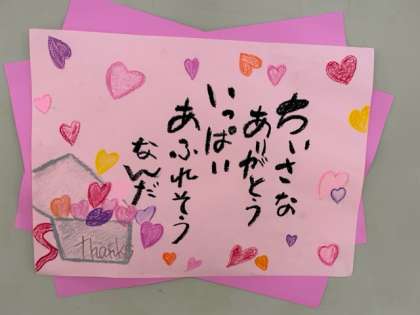 ちいさな
ありがとう
いっぱい
あふれそう
なんだ
Thanks